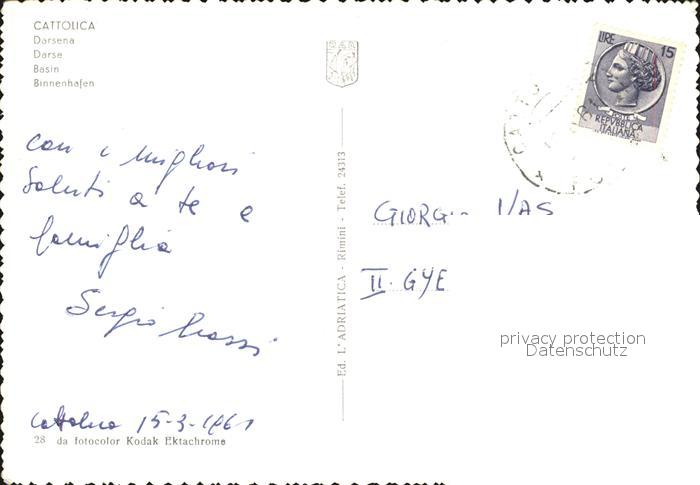 CATTOLICA
Darsena
Darse
Basin
Binnenhafen
LIRE 15
POSTE
REPVBBLICA
ITALIANA
con i migliori
saluti a te e
famiglia
Sergio
Cattolica 15-3-1961
28 da fotocolor Kodak Ektachrome
Ed. L'ADRIATICA - Rimini - Telef. 24313
GIORG
II. GYE
privacy protection
Datenschutz